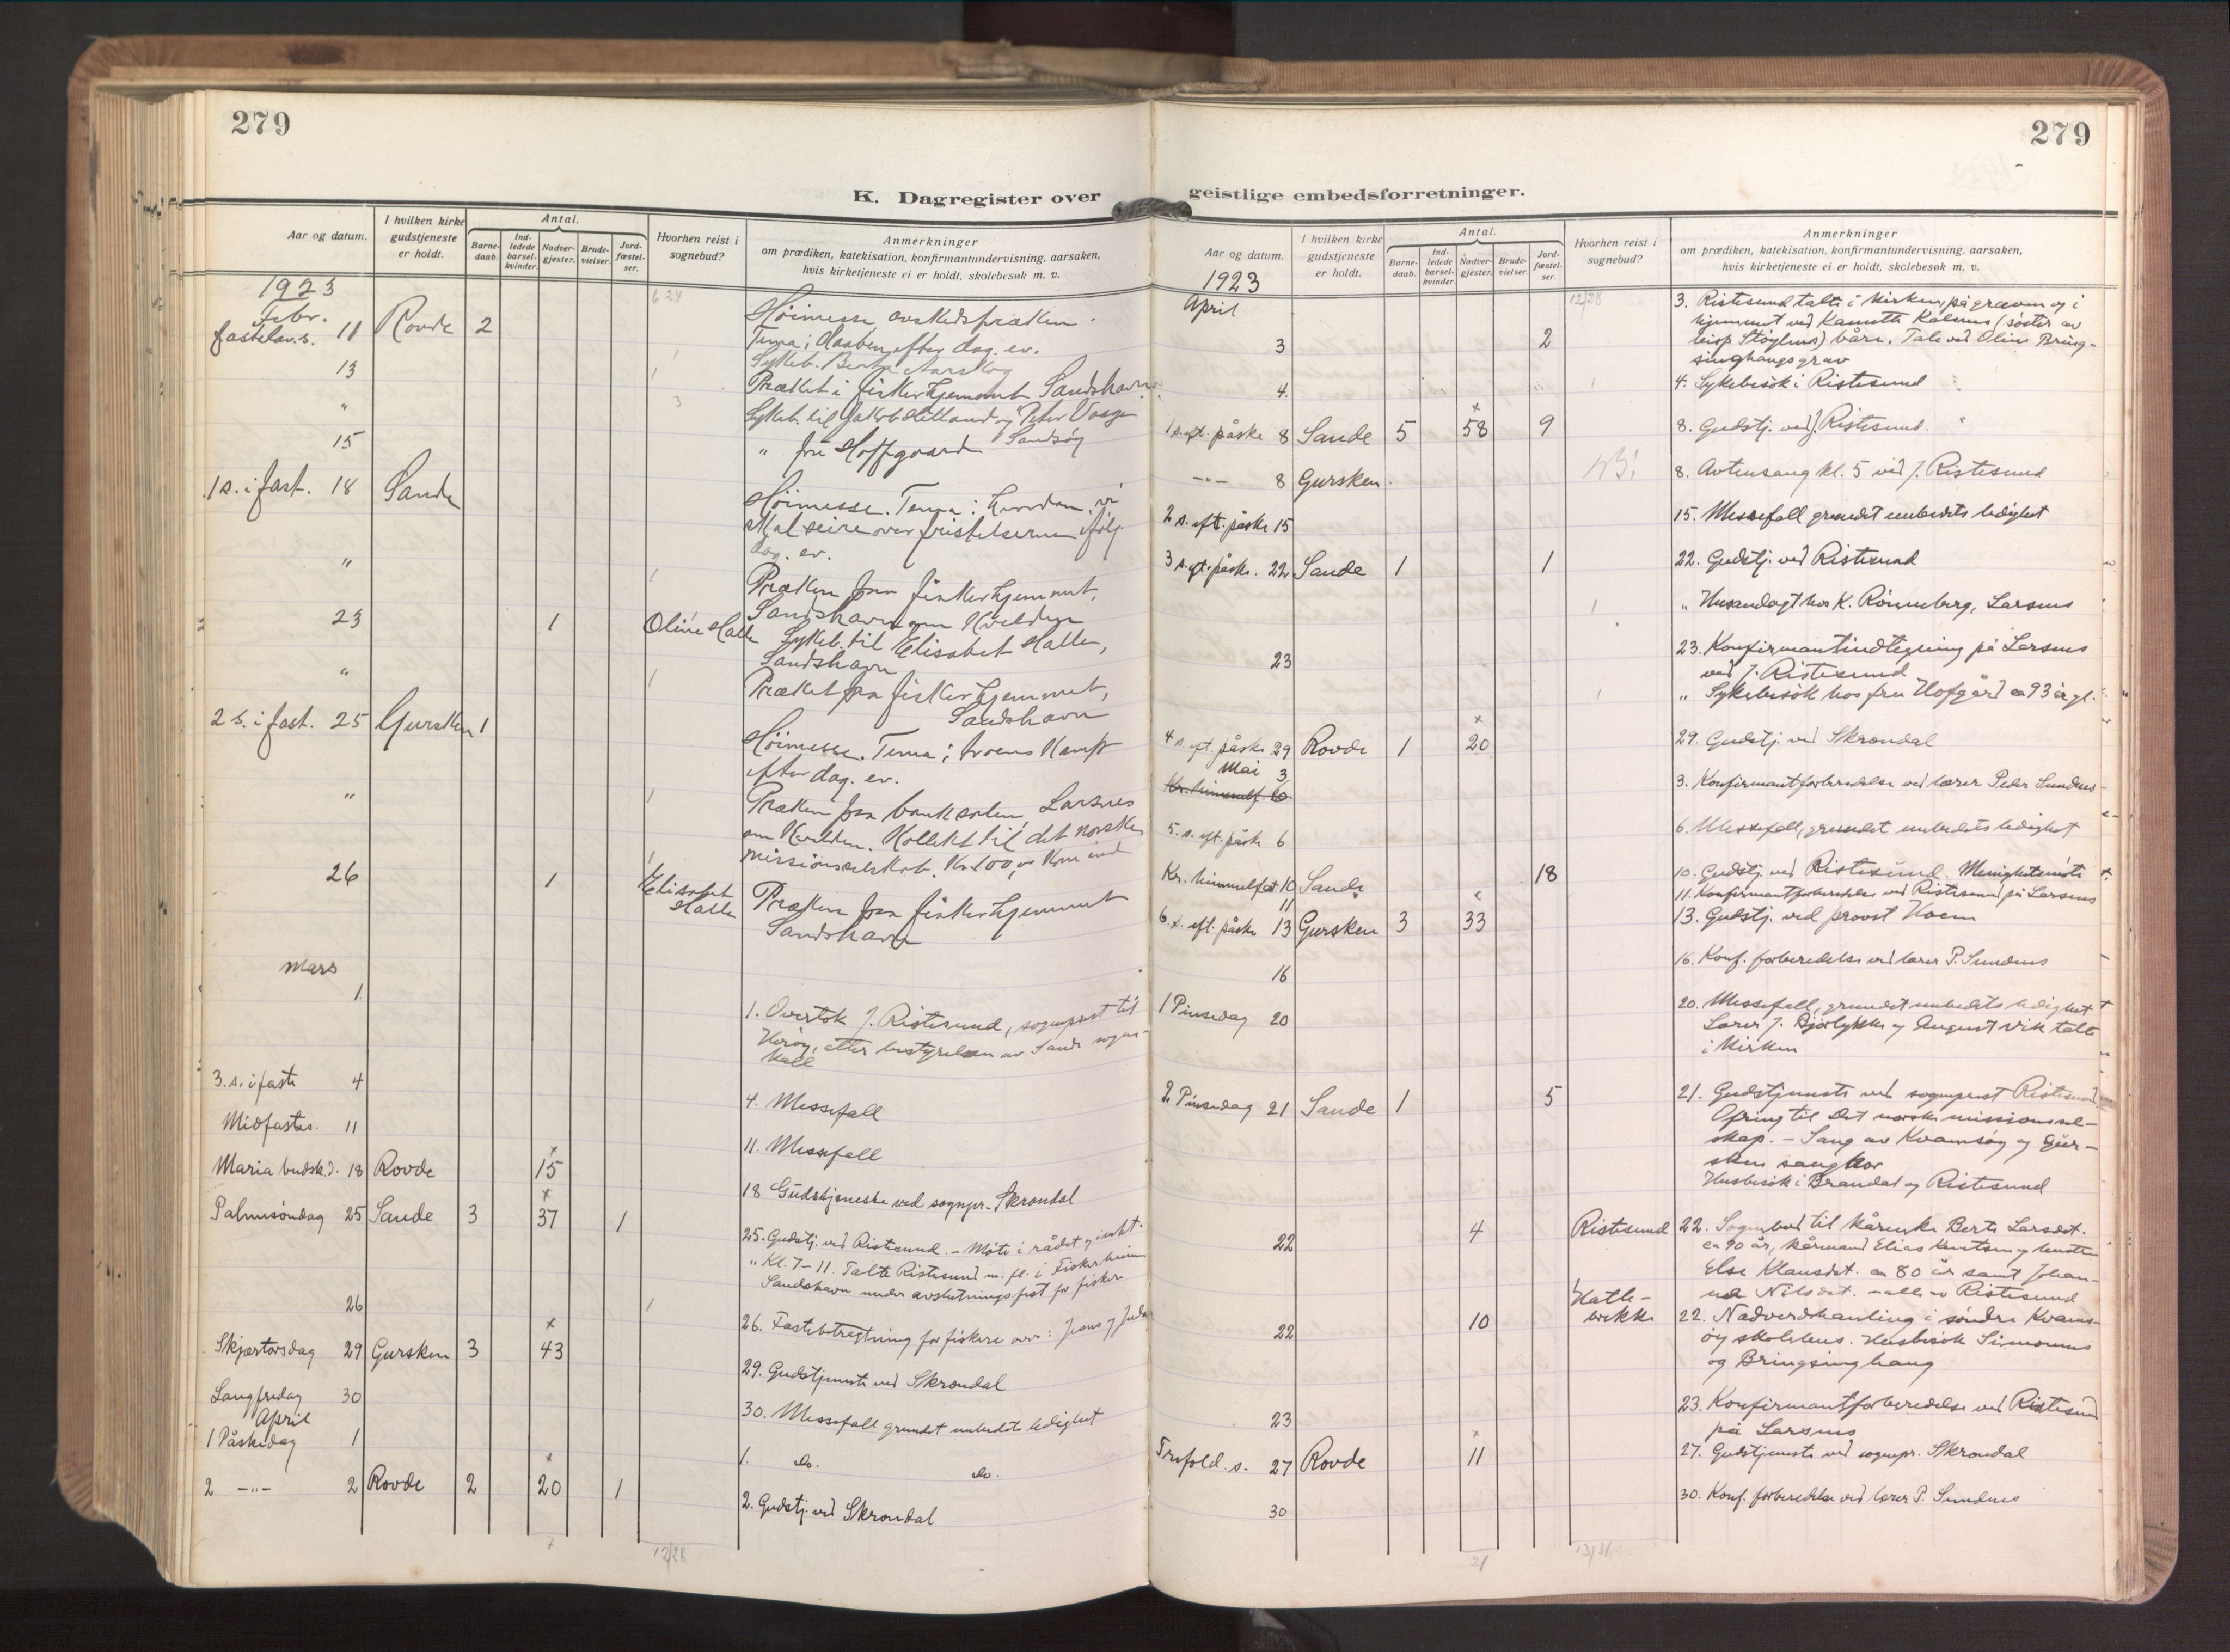 279
K. Dagregister over
Aar og datum.
I hvilken kirke gudstjeneste er holdt.
Antal.
Barne-daab.
Ind-ledede barsel-kvinder.
Nadver-gjester.
Brude-vielser.
Jord-fæstel-ser.
Hvorhen reist i sognebud?
Anmerkninger
om prædiken, katekisation, konfirmantundervisning, aarsaken,
hvis kirketjeneste ei er holdt, skolebesøk m. v.
1923
Febr.
fastelav.s. 11 Rovde 2
Høimesse avskedspræken.
Tema: Daaben efter dag. ev.
13
Sykeb. Aarskog
Præket i fiskerhjemmet Sandshavn
"
Sykeb. til Jakob og Peter Vaage
Sandsøy
15
" fru Hoffgaard
1 s. i fast. 18 Sande
Høimesse. Tema: hvordan vi
skal seire over fristelserne ifølg.
dag. ev.
"
Præken paa fiskerhjemmet,
Sandshavn om kvelden
23 1 Oline Halle
Sykeb. til Elisabet Halle,
Sandshavn
"
Præket paa fiskerhjemmet,
Sandshavn
2 s. i fast. 25 Gursken 1
Høimesse. Tema: troens kamp
efter dag. ev.
"
Præken paa banksalen, Larsnes
om kvelden. Kollekt til det norske
missionsselskab. Kr. 100,00 kom ind
26 1 Elisabet Halle
Præken paa fiskerhjemmet
Sandshavn
Mars
1
1. Overtok J. Ristesund, sogneprest til
Herøy, atter bestyrelsen av Sande sogne-
kall
3. s. i faste 4
4. Messefall
Midfastes. 11
11. Messefall
Maria budsk.d. 18 Rovde 15
18 Gudstjeneste ved sognepr. Skrondal
Palmesøndag 25 Sande 3 37 1
25. Gudstj. ved Ristesund. - Møte i rådet
" Kl. 7-11. Talte Ristesund m. fl. i Fiskerheimen
Sandshavn under avslutningsfest for fiskere
26
26. Fastebetragtning for fiskere over: Jesus og Judas
Skjærtorsdag 29 Gursken 3 43
29. Gudstjeneste ved Skrondal
Langfredag 30
30. Messefall grundet embedets ledighet
April
1 Påskedag 1
1. do. do.
2 -"- 2 Rovde 2 20 1
2. Gudstj. ved Skrondal
7
12/28
279
geistlige embedsforretninger.
Aar og datum.
I hvilken kirke gudstjeneste er holdt.
Antal.
Barne-daab.
Ind-ledede barsel-kvinder.
Nadver-gjester.
Brude-vielser.
Jord-fæstel-ser.
Hvorhen reist i sognebud?
Anmerkninger
om prædiken, katekisation, konfirmantundervisning, aarsaken,
hvis kirketjeneste ei er holdt, skolebesøk m. v.
1923
12/28
April
3 2
3. Ristesund talte i kirken, på graven og i
hjemmet ved (søster av
bisp Støylens) båre. Tale ved Oline Bring-
singhaugs grav
4.
4. Sykebesøk i Ristesund
1 s. eft. påske 8 Sande 5 58 9
8. Gudstj. ved J. Ristesund.
-"- 8 Gursken.
8. Aftensang kl. 5 ved J. Ristesund
2 s. eft. påske 15
15. Messefall grundet embedets ledighet
3 s. eft. påske. 22 Sande 1 1
22. Gudstj. ved Ristesund
" Husandagt hos K. Rønneberg, Larsnes
23
23. Konfirmantindtegning på Larsnes
ved J. Ristesund
" Sykebesøk hos fru Hofgård ca 93 år gl.
4 s. eft. påske 29 Rovde 1 20
29. Gudstj. ved Skrondal
Mai 3
3. Konfirmantforberedelse ved lærer Peder Sundnes
Kr. himmelf. 10
5. s. eft. påske 6
6. Messefall, grundet embedets ledighet
Kr. himmelfart 10 Sande 18
10. Gudstj. ved Ristesund. Menighetsmøte
11
11. Konfirmantforberedelse ved Ristesund på Larsnes
6. s. eft. påske 13 Gursken 3 33
13. Gudstj. ved provst Hoem
16
16. Konf. forberedelse ved lærer P. Sundnes
1 Pinsedag 20
20. Messefall, grundet embedets ledighet
Lærer J. Bjørlykke og August Vik talte
i kirken
2 Pinsedag 21 Sande 1 5
21. Gudstjeneste ved sogneprest Ristesund
Ofring til Det norske missionssel-
skap. - Sang av Kvamsøy og Gur-
sken sangkor
Husbesøk i Brandal og Ristesund
22 4 Ristesund
22. Sognebud til kårenke Berte Larsdt.
ca 90 år, kårmand Elias Knutsen og hustru
Else Klausdt. ca 80 år samt Johan-
ne Nilsdt. - alle av Ristesund
22 10 Hatle-brekke
22. Nadverdhandling i søndre Kvams-
øy skolehus. Husbesøk Simonnes
og Bringsinghaug
23
23. Konfirmantforberedelse ved Ristesund
på Larsnes
Trefold. s. 27 Rovde 11
27. Gudstjeneste ved sognepr. Skrondal
30
30. Konf. forberedelse ved lærer P. Sundnes
21
13/31